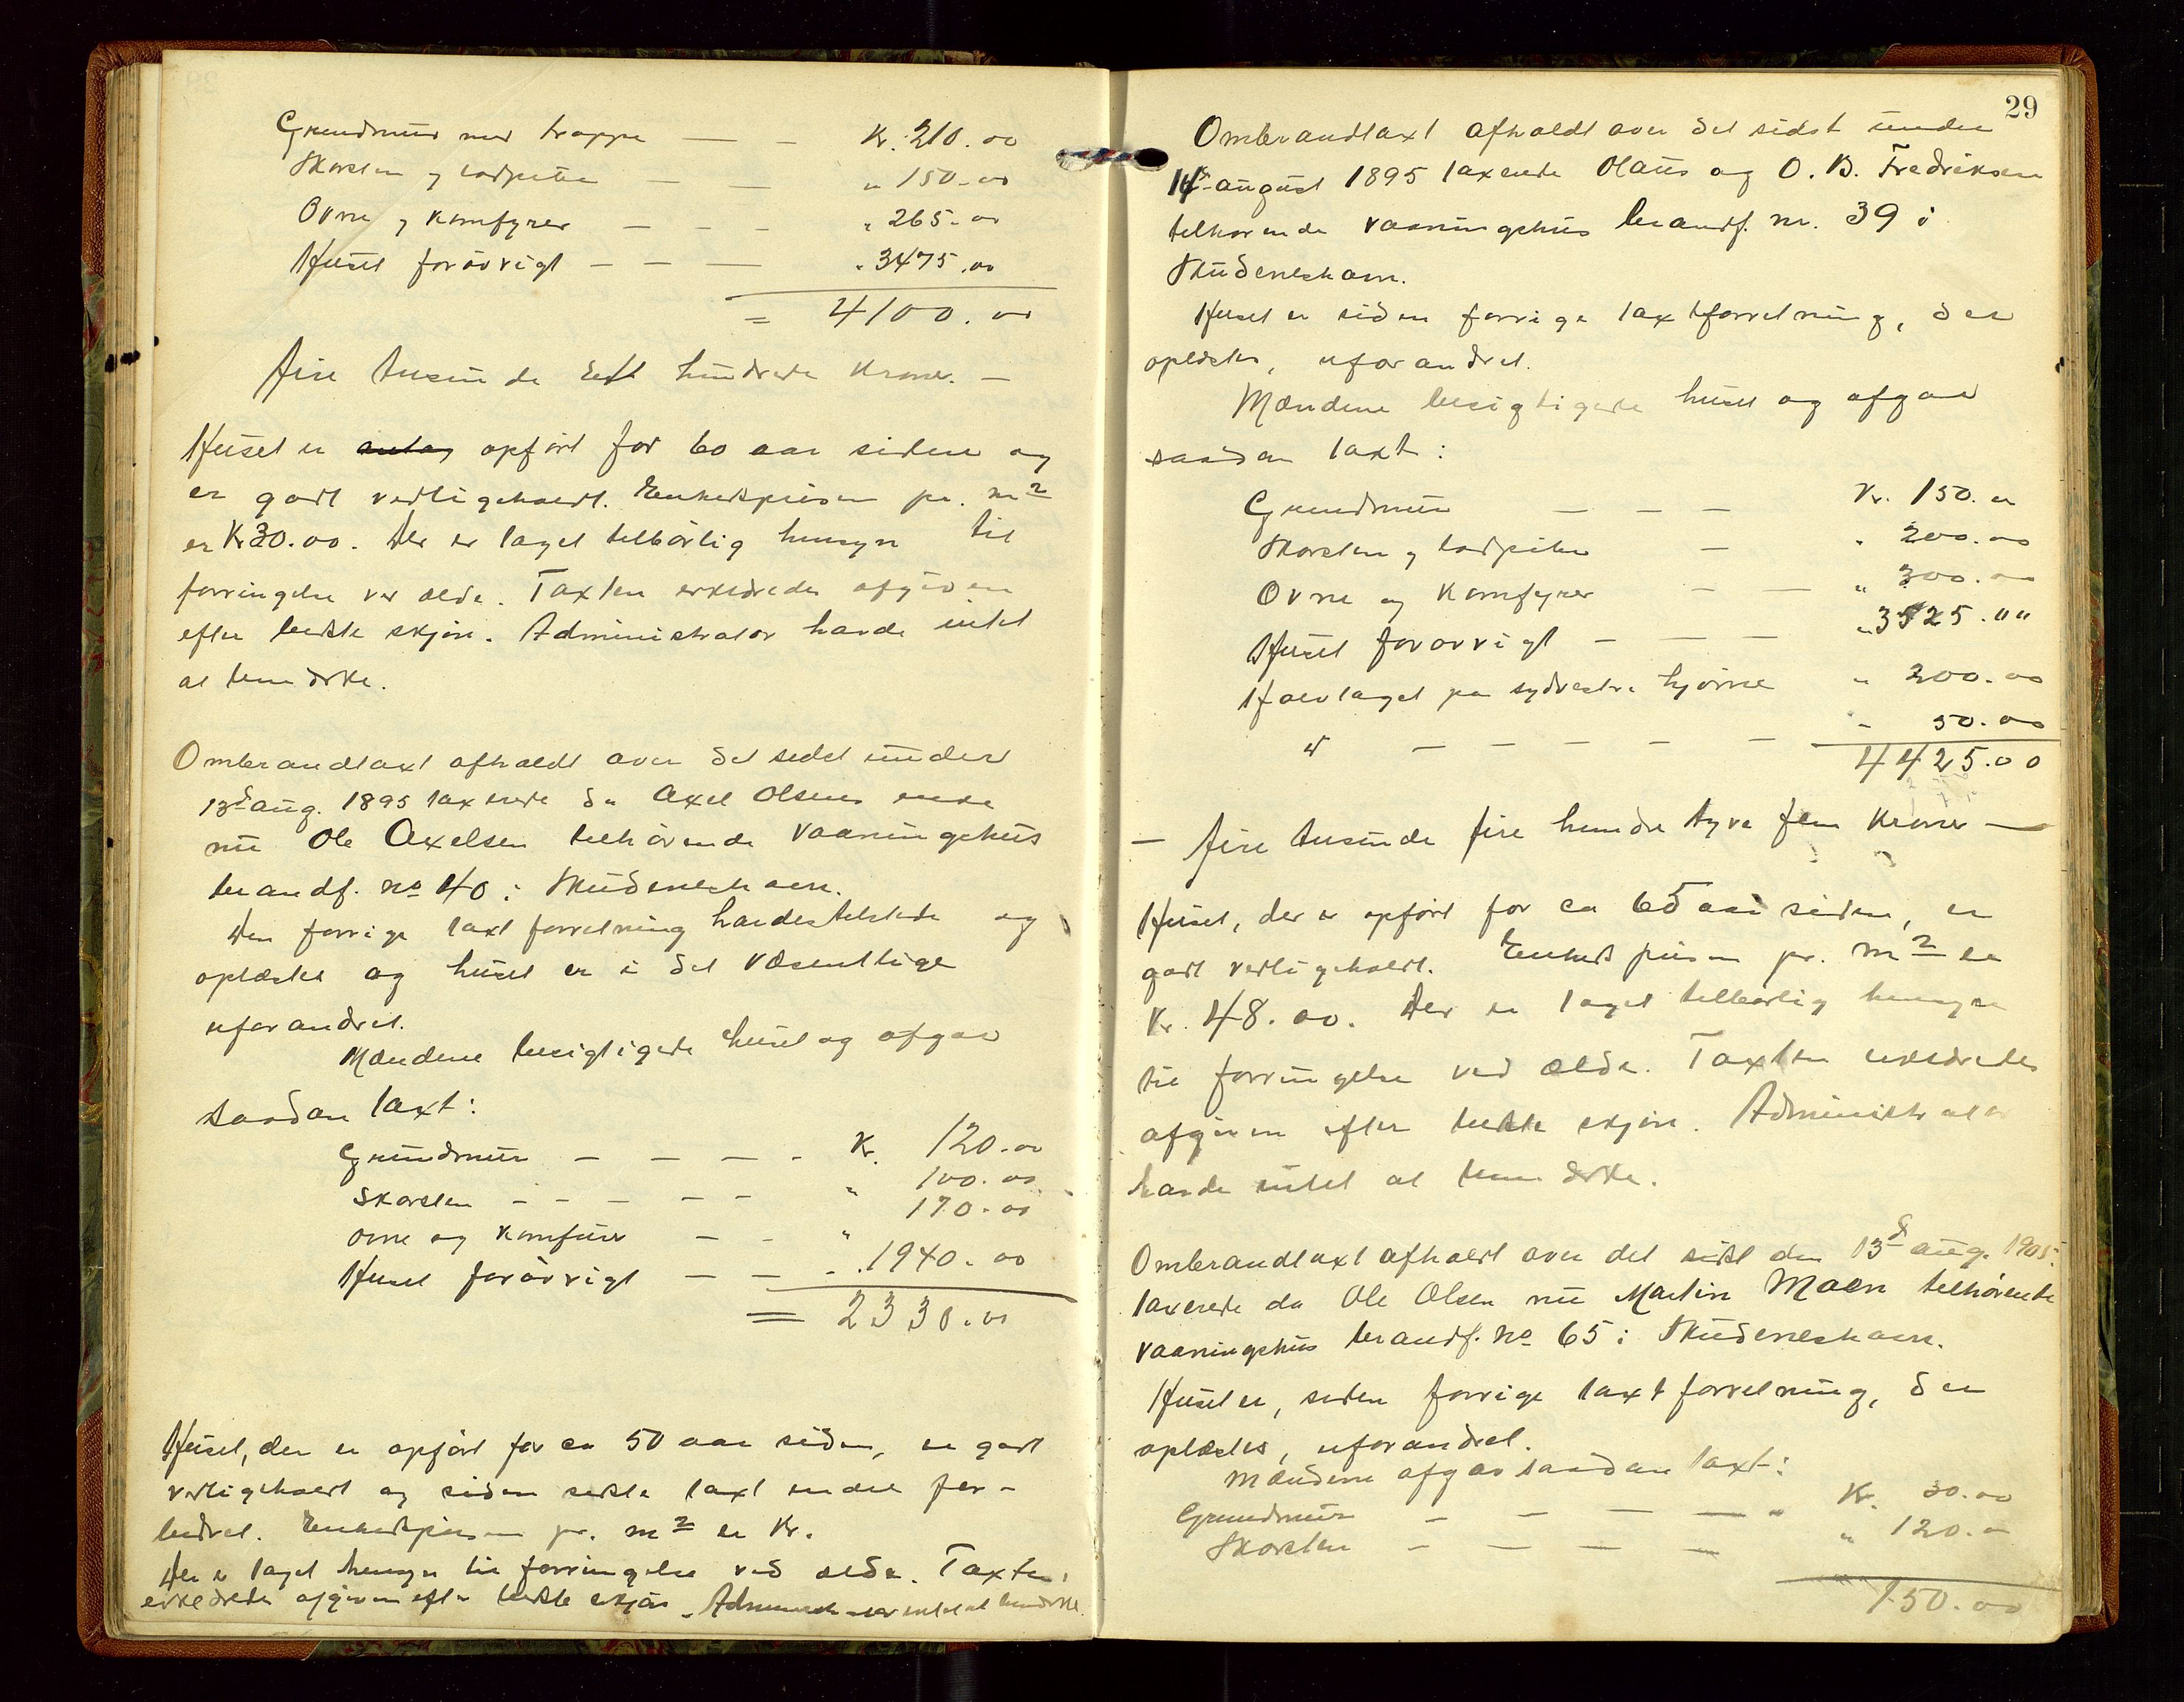 Grundmur med trappe — - Kr. 210.00
Skorsten og lodpiber — — " 150.00
Ovne og komfyrer — - - " 265.00
Huset forøvrigt - — — " 3475.00
= 4100.00
fire tusinde et hundrede kroner. —
Huset er opført for 60 aar siden og
er godt vedligeholdt. Enhedsprisen pr. m2
er Kr 30.00. Der er taget tilbørlig hensyn til
forringelse ved ælde. Taxten erklæredes afgiven
efter bedste skjøn. Administrator havde intet
at bemærke.
Ombrandtaxt afholdt over det sidst under
13d aug. 1895 taxerede da Axel Olsens enke
nu Ole Axelsen tilhørende vaaningshus
brandf. no 40 i Skudeneshavn.
Den forrige taxtforretning havdes tilstede og
oplæstes og huset er i det væsentlige
uforandret.
Mændene besigtigede huset og afgav
saadan taxt:
Grundmur — — — - Kr. 120.00
Skorsten - - - - - " 100.00
Ovne og komfurer - - " 170.00
Huset forøvrigt — — - " 1940.00
= 2330.00
Huset, der er opført for ca 50 aar siden, er godt
vedligeholdt og siden sidste taxt endel for-
bedret. Enhedsprisen pr. m2 er Kr.
Der er taget hensyn til forringelse ved ælde. Taxten
erklæredes afgiven efter bedste skjøn. intet at bemærke.
29
Ombrandtaxt afholdt over det sidst under
14d august 1895 taxerede Olaus og O. B. Fredriksen
tilhørende vaaningshus brandf. nr. 39 i
Skudeneshavn.
Huset er siden forrige taxtforretning, der
oplæstes, uforandret.
Mændene besigtigede huset og afgav
saadan taxt:
Grundmur — - — Kr. 150.00
Skorsten og lodpiber — " 200.00
Ovne og komfyrer - — " 300.00
Huset forøvrigt - — — " 3525.""
Halvtaget paa sydvestre hjørne " 200.00
" — - - - - - 50.00
4425.00
— fire tusinde fire hundre tyve fem kroner —
Huset, der er opført for ca 65 aar siden, er
godt vedligeholdt. Enhedsprisen pr. m2 er
Kr. 48.00. Der er taget tilbørlig hensyn
til forringelse ved ælde. Taxten erklæredes
afgiven efter bedste skjøn. Administrator
havde intet at bemærke.
Ombrandtaxt afholdt over det sidst den 13d aug. 1905
taxerede da Ole Olsen nu Martin tilhørende
vaaningshus brandf. no 65 i Skudeneshavn.
Huset er, siden forrige taxtforretning, der
oplæstes, uforandret.
Mændene afgav saadan taxt:
Grundmur - - — — " Kr. 30.00
Skorsten - — — — " 120.00
150.00